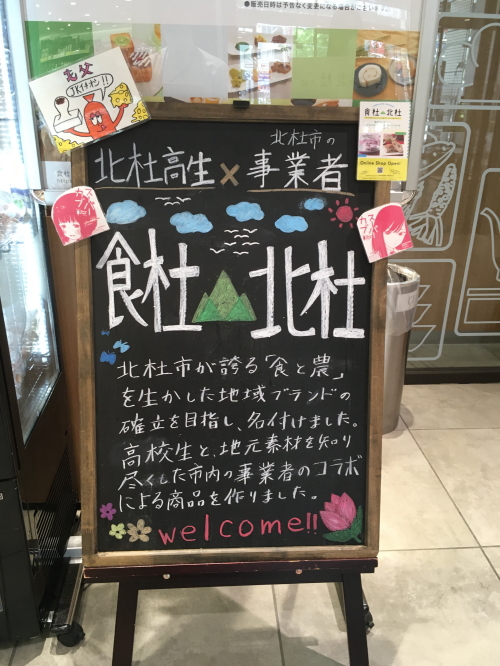 ●販売日時は予告なく変更になる場合がございます
JKイチオシ!!
食杜 北杜
Online Shop Open!
北杜高生×北杜市の事業者
食杜 北杜
北杜市が誇る「食と農」
を生かした地域ブランドの
確立を目指し、名付けました。
高校生と、地元素材を知り
尽くした市内の事業者のコラボ
による商品を作りました。
welcome!!